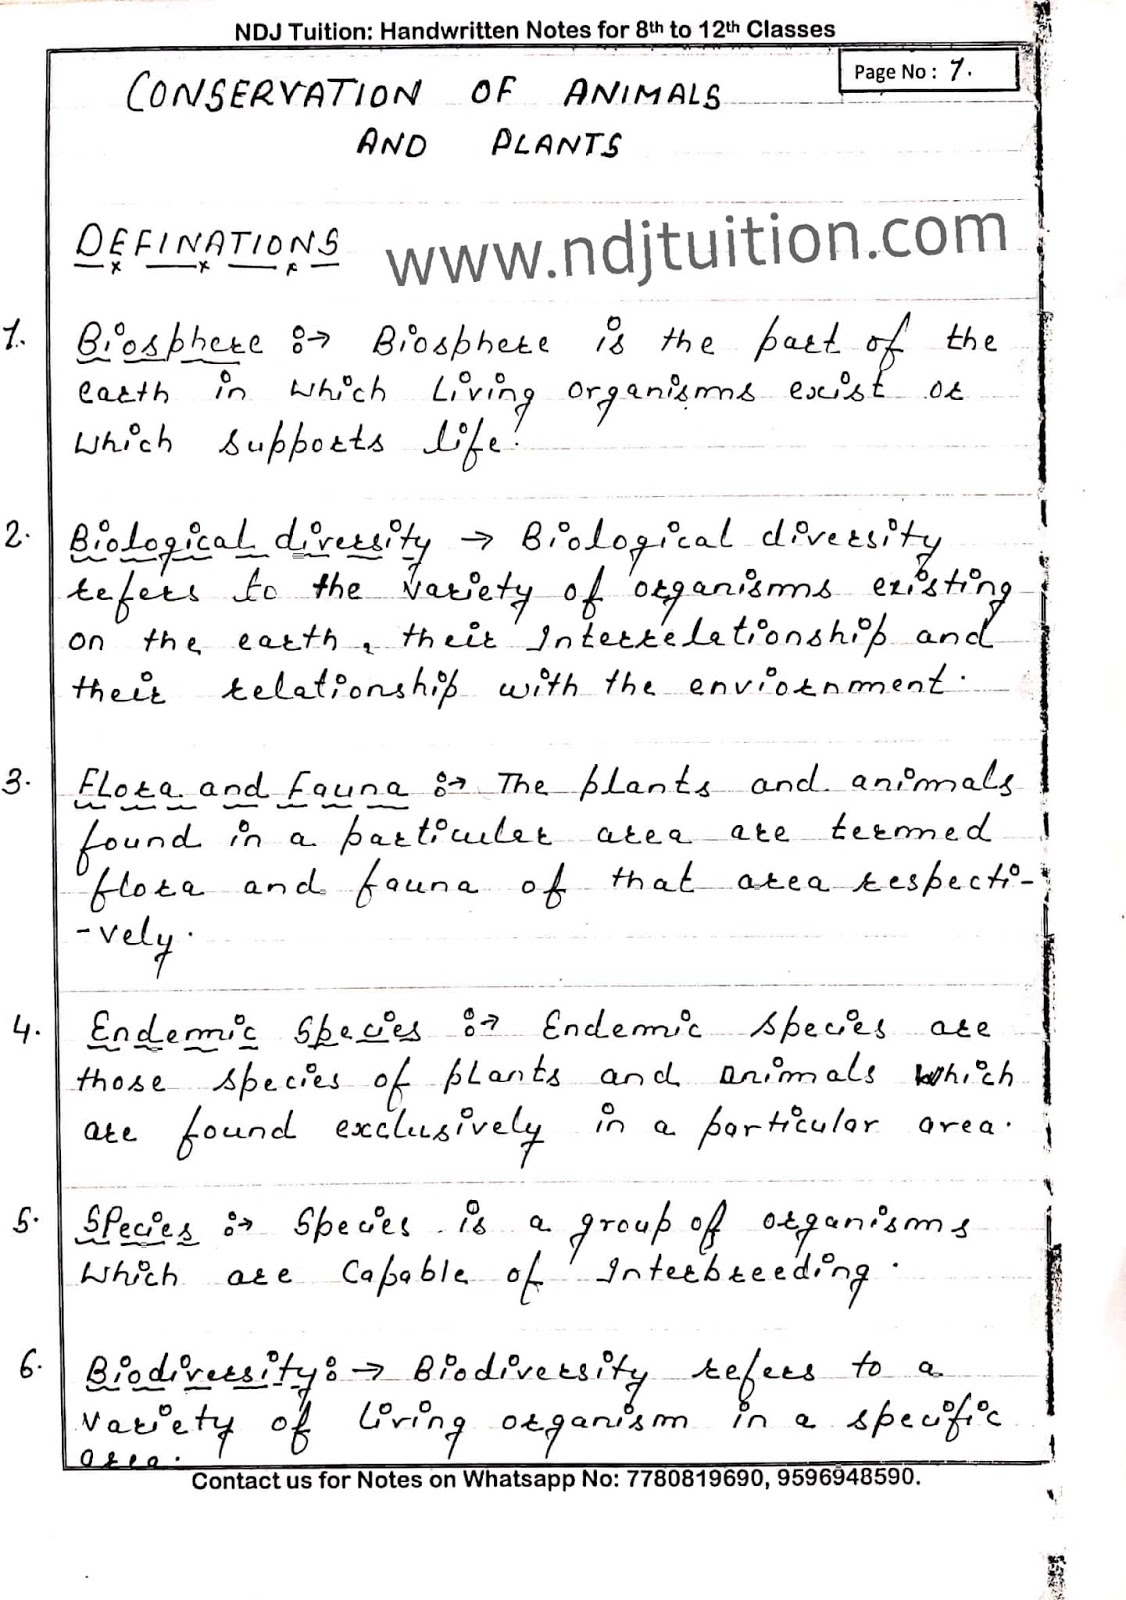 NDJ Tuition: Handwritten Notes for 8th to 12th Classes
Page No : 1.
CONSERVATION OF ANIMALS
AND PLANTS
DEFINATIONS
www.ndjtuition.com
1. Biosphere :→ Biosphere is the part of the
earth in which living organisms exist or
which supports life.
2. Biological diversity → Biological diversity
refers to the variety of organisms existing
on the earth, their Interrelationship and
their relationship with the enviornment.
3. Flora and Fauna :→ The plants and animals
found in a particuler area are termed
flora and fauna of that area respecti-
-vely.
4. Endemic Species :→ Endemic species are
those species of plants and animals which
are found exclusively in a particular area.
5. Species :→ Species is a group of organisms
which are Capable of Interbreeding.
6. Biodiversity :→ Biodiversity refers to a
variety of living organism in a specific
area.
Contact us for Notes on Whatsapp No: 7780819690, 9596948590.